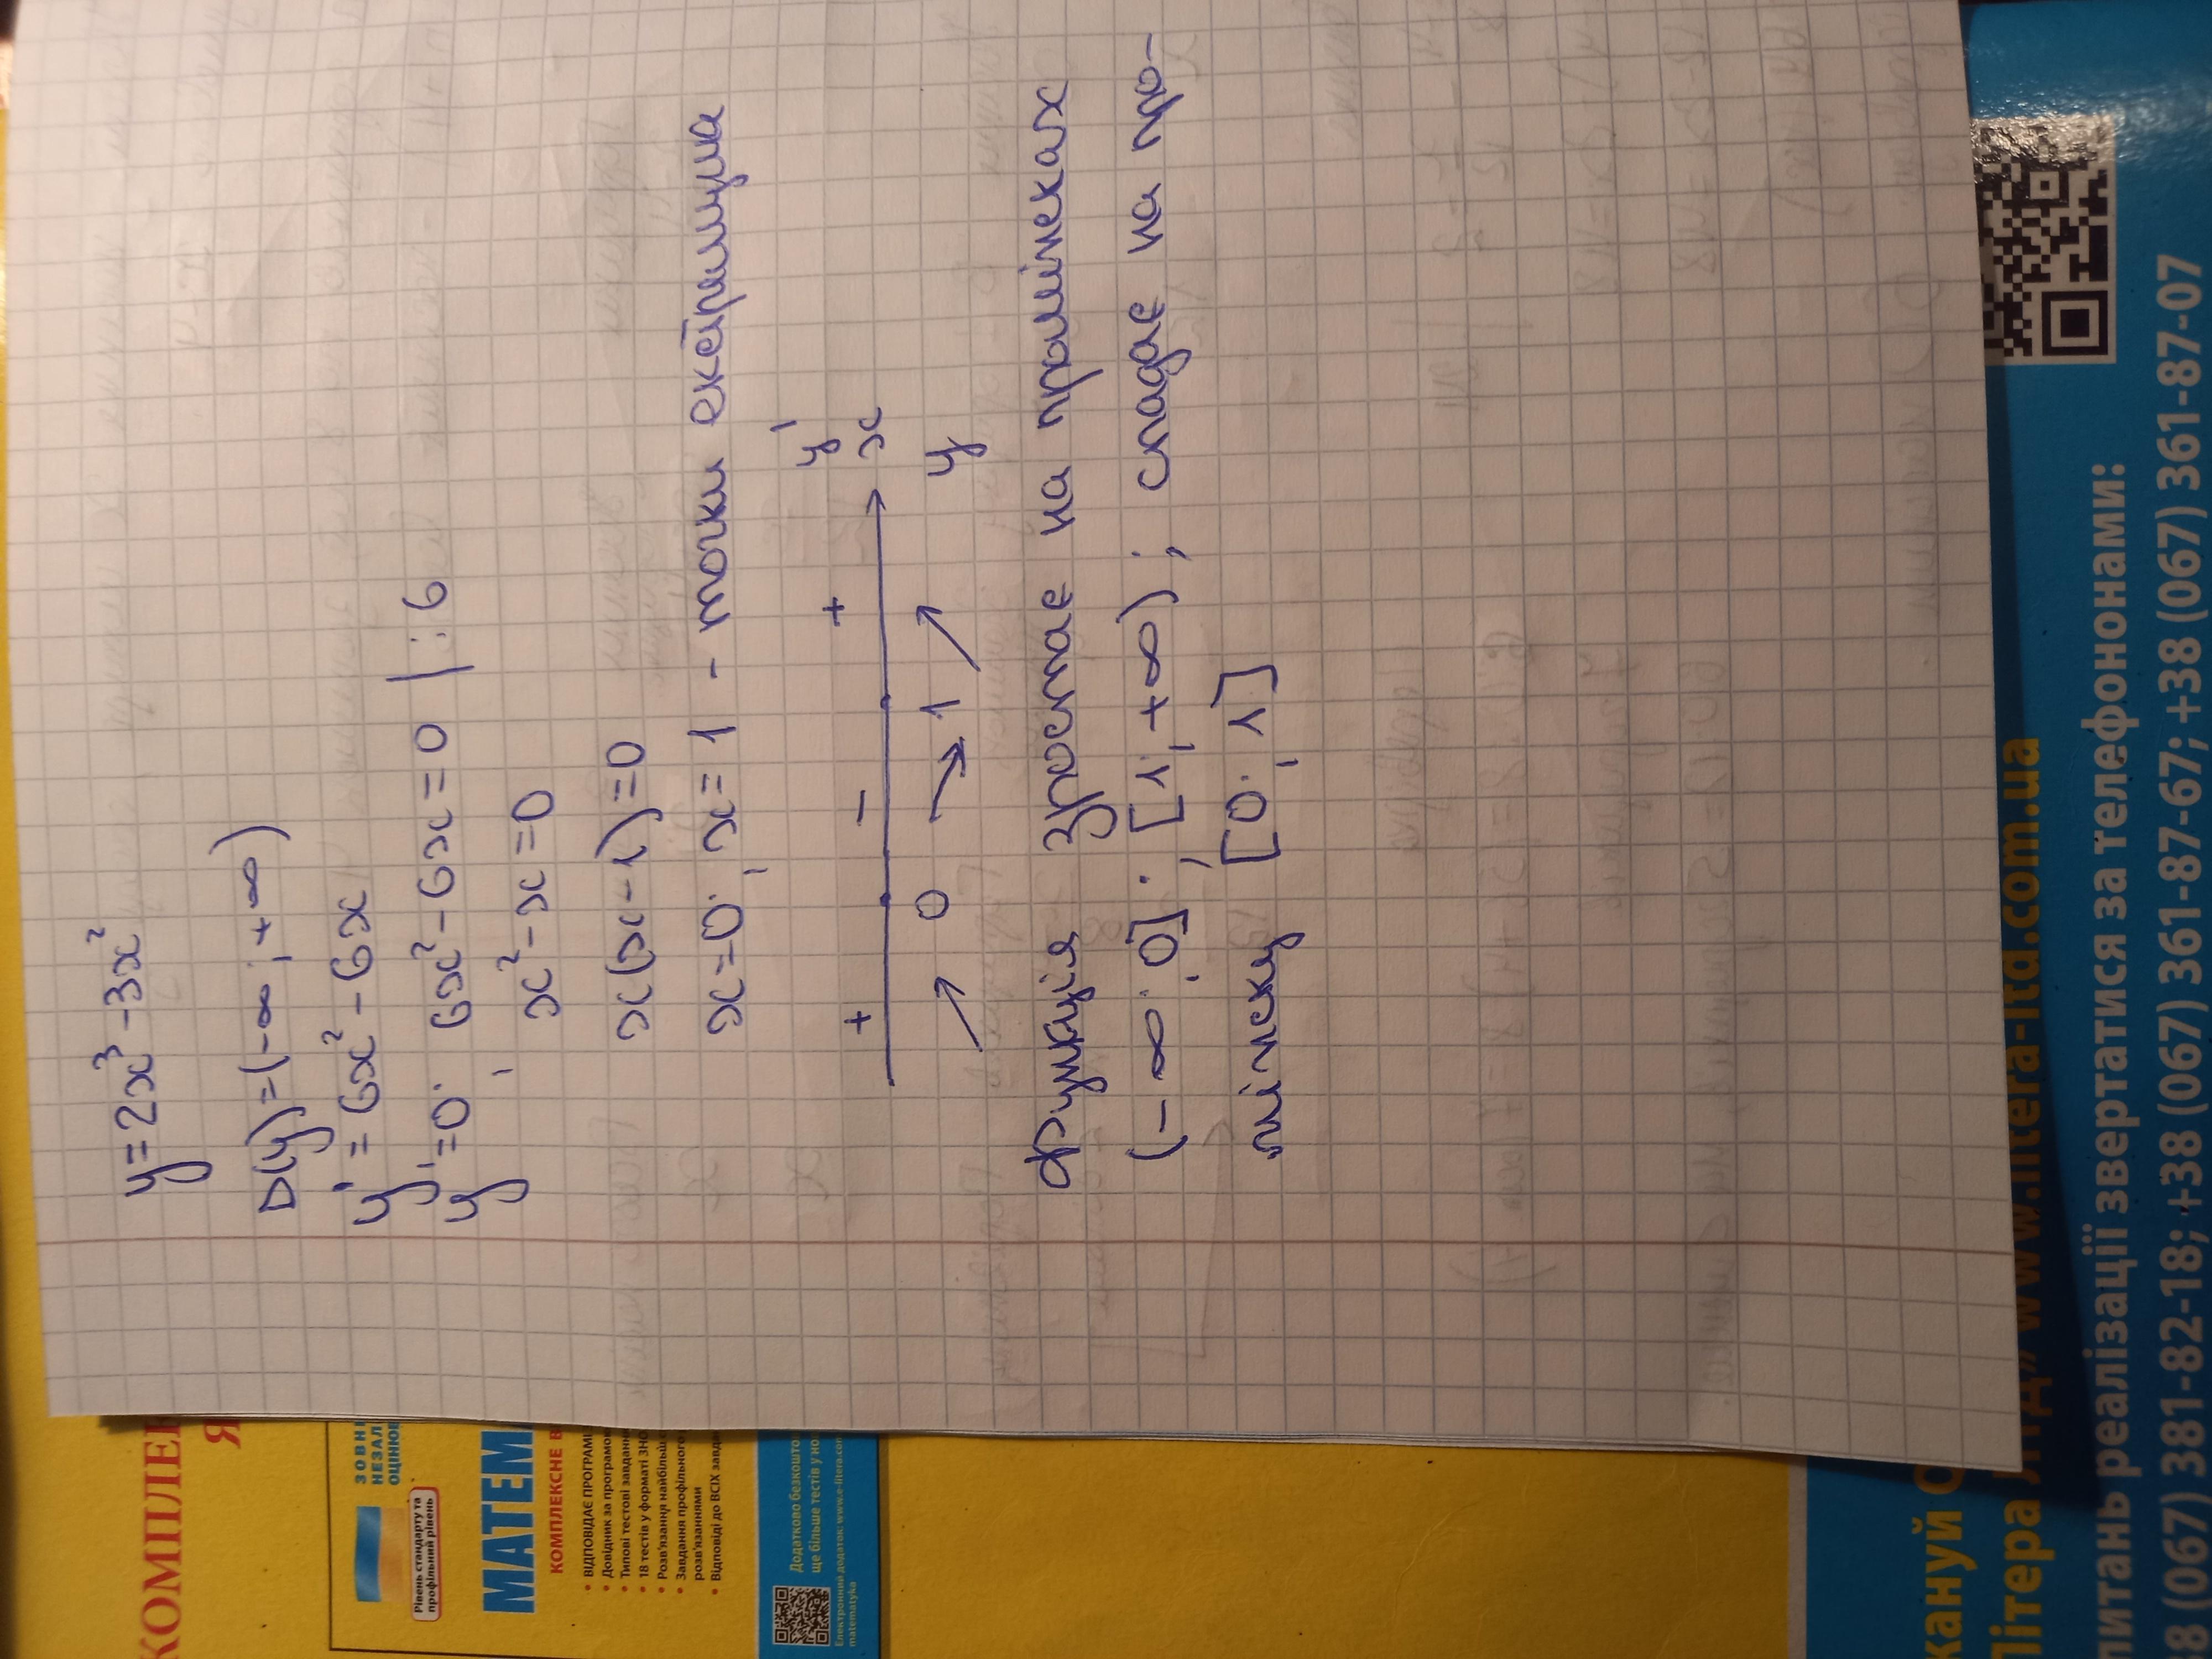 y = 2x³ - 3x²
D(y) = (-∞; +∞)
y' = 6x² - 6x
y' = 0; 6x² - 6x = 0 | : 6
x² - x = 0
x(x-1) = 0
x = 0; x = 1 - точки екстремума
+ - + y'
x
0 1 y
Функція зростає на проміжках
(-∞; 0]; [1; +∞); спадає на про-
міжку [0; 1]
КОМПЛЕ
Я
ЗОВН
НЕЗАЛ
ОЦІНЮВ
Рівень стандарту та
профільний рівень
МАТЕМ
КОМПЛЕКСНЕ В
• ВІДПОВІДАЄ ПРОГРАМІ
• Довідник за програмою
• Типові тестові завдання
• 18 тестів у форматі ЗНО
• Розв'язання найбільш
• Завдання профільного
розв'язаннями
• Відповіді до ВСІХ завда
Додатково безкошто
ще більше тестів у но
Електронний додаток: www.e-litera.com
matematyka
кануй
Літера ЛТД» www.litera-ltd.com.ua
питань реалізації звертатися за телефононами:
38 (067) 381-82-18; +38 (067) 361-87-67; +38 (067) 361-87-07